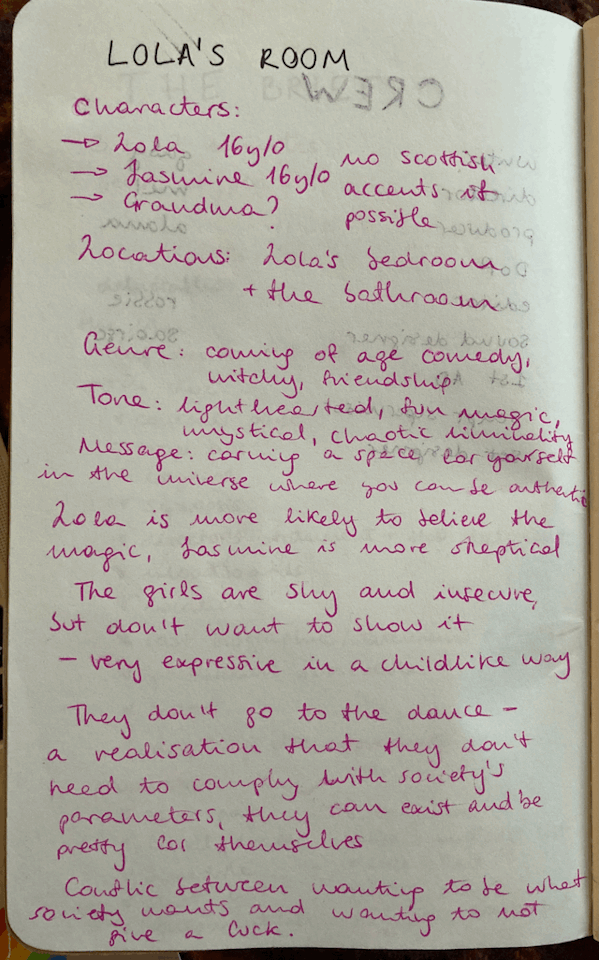 LOLA'S ROOM
CREW
Characters:
→ Lola 16y/o
→ Jasmine 16y/o
→ Grandma?
no scottish
accents if
possible
Locations: Lola's bedroom
+ the bathroom
Genre: coming of age comedy,
witchy, friendship
Tone: lighthearted, fun magic,
mystical, chaotic liminality
Message: carving a space for yourself
in the universe where you can be authentic
Lola is more likely to believe the
magic, Jasmine is more skeptical
The girls are shy and insecure,
but don't want to show it
- very expressive in a childlike way
They don't go to the dance -
a realisation that they don't
need to comply with society's
parameters, they can exist and be
pretty for themselves
Conflic between wanting to be what
society wants and wanting to not
give a fuck.